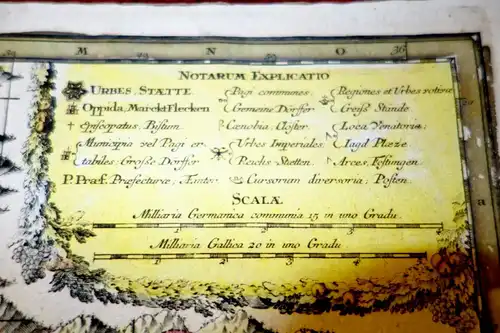 M N O 36
NOTARUM EXPLICATIO
URBES, STÆTTE
Oppida MarcktFlecken
Episcopatus, Bistum.
Municipia vel Pagi er
tabiles: Große Dörffer
P. Præf. Præfecturæ; Æmter:
Pagi communes;
Gemeine Dörffer
Cœnobia; Closter.
Urbes Imperiales;
Reichs Stetten.
Cursorum diversoria; Posten.
Regiones et Urbes
Creiß Stände
Loca Venatoriæ;
Iagd Plæze
Arces, Festungen
SCALÆ
Milliaria Germanica communia 15 in uno Gradu.
1 2 3
Milliaria Gallica 20 in uno Gradu
1 2 3 4
a